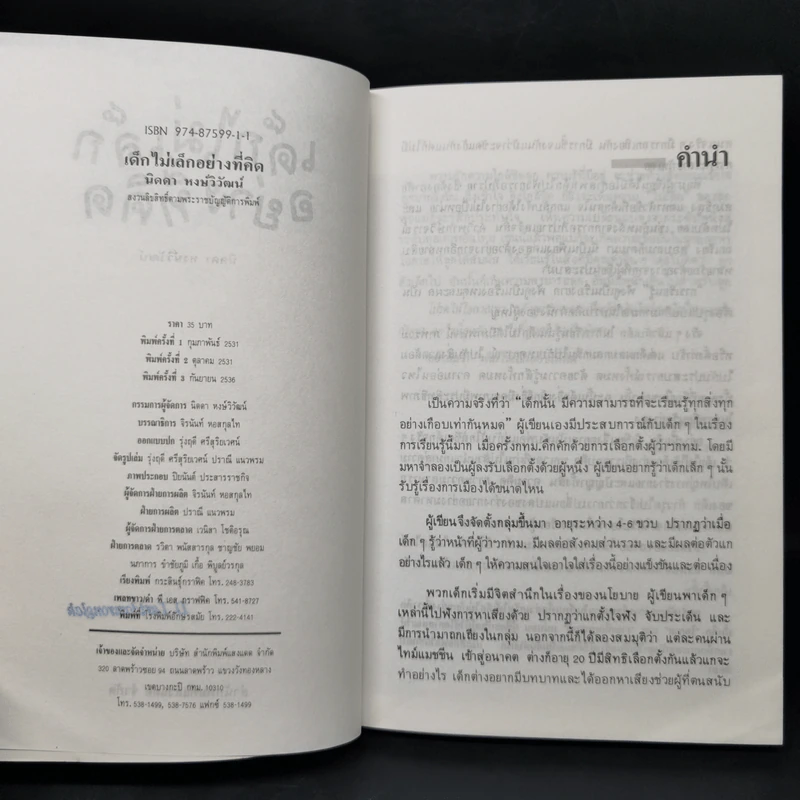 ISBN 974-87599-1-1
เด็กไม่เล็กอย่างที่คิด
นิดดา หงษ์วิวัฒน์
สงวนลิขสิทธิ์ตามพระราชบัญญัติการพิมพ์
ราคา 35 บาท
พิมพ์ครั้งที่ 1 กุมภาพันธ์ 2531
พิมพ์ครั้งที่ 2 ตุลาคม 2531
พิมพ์ครั้งที่ 3 กันยายน 2536
กรรมการผู้จัดการ นิดดา หงษ์วิวัฒน์
บรรณาธิการ จิรนันท์ หอสกุลไท
ออกแบบปก รุ่งฤดี ศรีสุริยเวศน์
จัดรูปเล่ม รุ่งฤดี ศรีสุริยเวศน์ ปราณี แนวพรม
ภาพประกอบ ปิยนันต์ ประสารราชกิจ
ผู้จัดการฝ่ายการผลิต จิรนันท์ หอสกุลไท
ฝ่ายการผลิต ปราณี แนวพรม
ผู้จัดการฝ่ายการตลาด เวนิสา โชติอรุณ
ฝ่ายการตลาด รวิตา พนัสสารกุล ชาญชัย พยอม
นภาการ รำชัยภูมิ เกื้อ พิบูลย์วรกุล
เรียงพิมพ์ กระสินธุ์กราฟิค โทร. 248-3783
เพลทขาว/ดำ พี.เอส.กราฟฟิค โทร. 541-8727
พิมพ์ที่ โรงพิมพ์อักษรสมัย โทร. 222-4141
เจ้าของและจัดจำหน่าย บริษัท สำนักพิมพ์แสงแดด จำกัด
320 ลาดพร้าวซอย 94 ถนนลาดพร้าว แขวงวังทองหลาง
เขตบางกะปิ กทม. 10310
โทร. 538-1499, 538-7576 แฟกซ์ 538-1499
คำนำ
เป็นความจริงที่ว่า “เด็กนั้น มีความสามารถที่จะเรียนรู้ทุกสิ่งทุก
อย่างเกือบเท่ากันหมด” ผู้เขียนเองมีประสบการณ์กับเด็ก ๆ ในเรื่อง
การเรียนรู้นี้มาก เมื่อครั้งกทม.คึกคักด้วยการเลือกตั้งผู้ว่าฯกทม. โดยมี
มหาจำลองเป็นผู้ลงรับเลือกตั้งด้วยผู้หนึ่ง ผู้เขียนอยากรู้ว่าเด็กเล็ก ๆ นั้น
รับรู้เรื่องการเมืองได้ขนาดไหน
ผู้เขียนจึงจัดตั้งกลุ่มขึ้นมา อายุระหว่าง 4-6 ขวบ ปรากฏว่าเมื่อ
เด็ก ๆ รู้ว่าหน้าที่ผู้ว่าฯกทม. มีผลต่อสังคมส่วนรวม และมีผลต่อตัวแก
อย่างไรแล้ว เด็ก ๆ ให้ความสนใจเอาใจใส่เรื่องนี้อย่างแข็งขันและต่อเนื่อง
พวกเด็กเริ่มมีจิตสำนึกในเรื่องของนโยบาย ผู้เขียนพาเด็ก ๆ
เหล่านี้ไปฟังการหาเสียงด้วย ปรากฏว่าแกตั้งใจฟัง จับประเด็น และ
มีการนำมาถกเถียงในกลุ่ม นอกจากนี้ก็ได้ลองสมมุติว่า แต่ละคนผ่าน
ไทม์แมชชีน เข้าสู่อนาคต ต่างก็อายุ 20 ปีมีสิทธิเลือกตั้งกันแล้วแกจะ
ทำอย่างไร เด็กต่างอยากมีบทบาทและได้ออกหาเสียงช่วยผู้ที่ตนสนับ